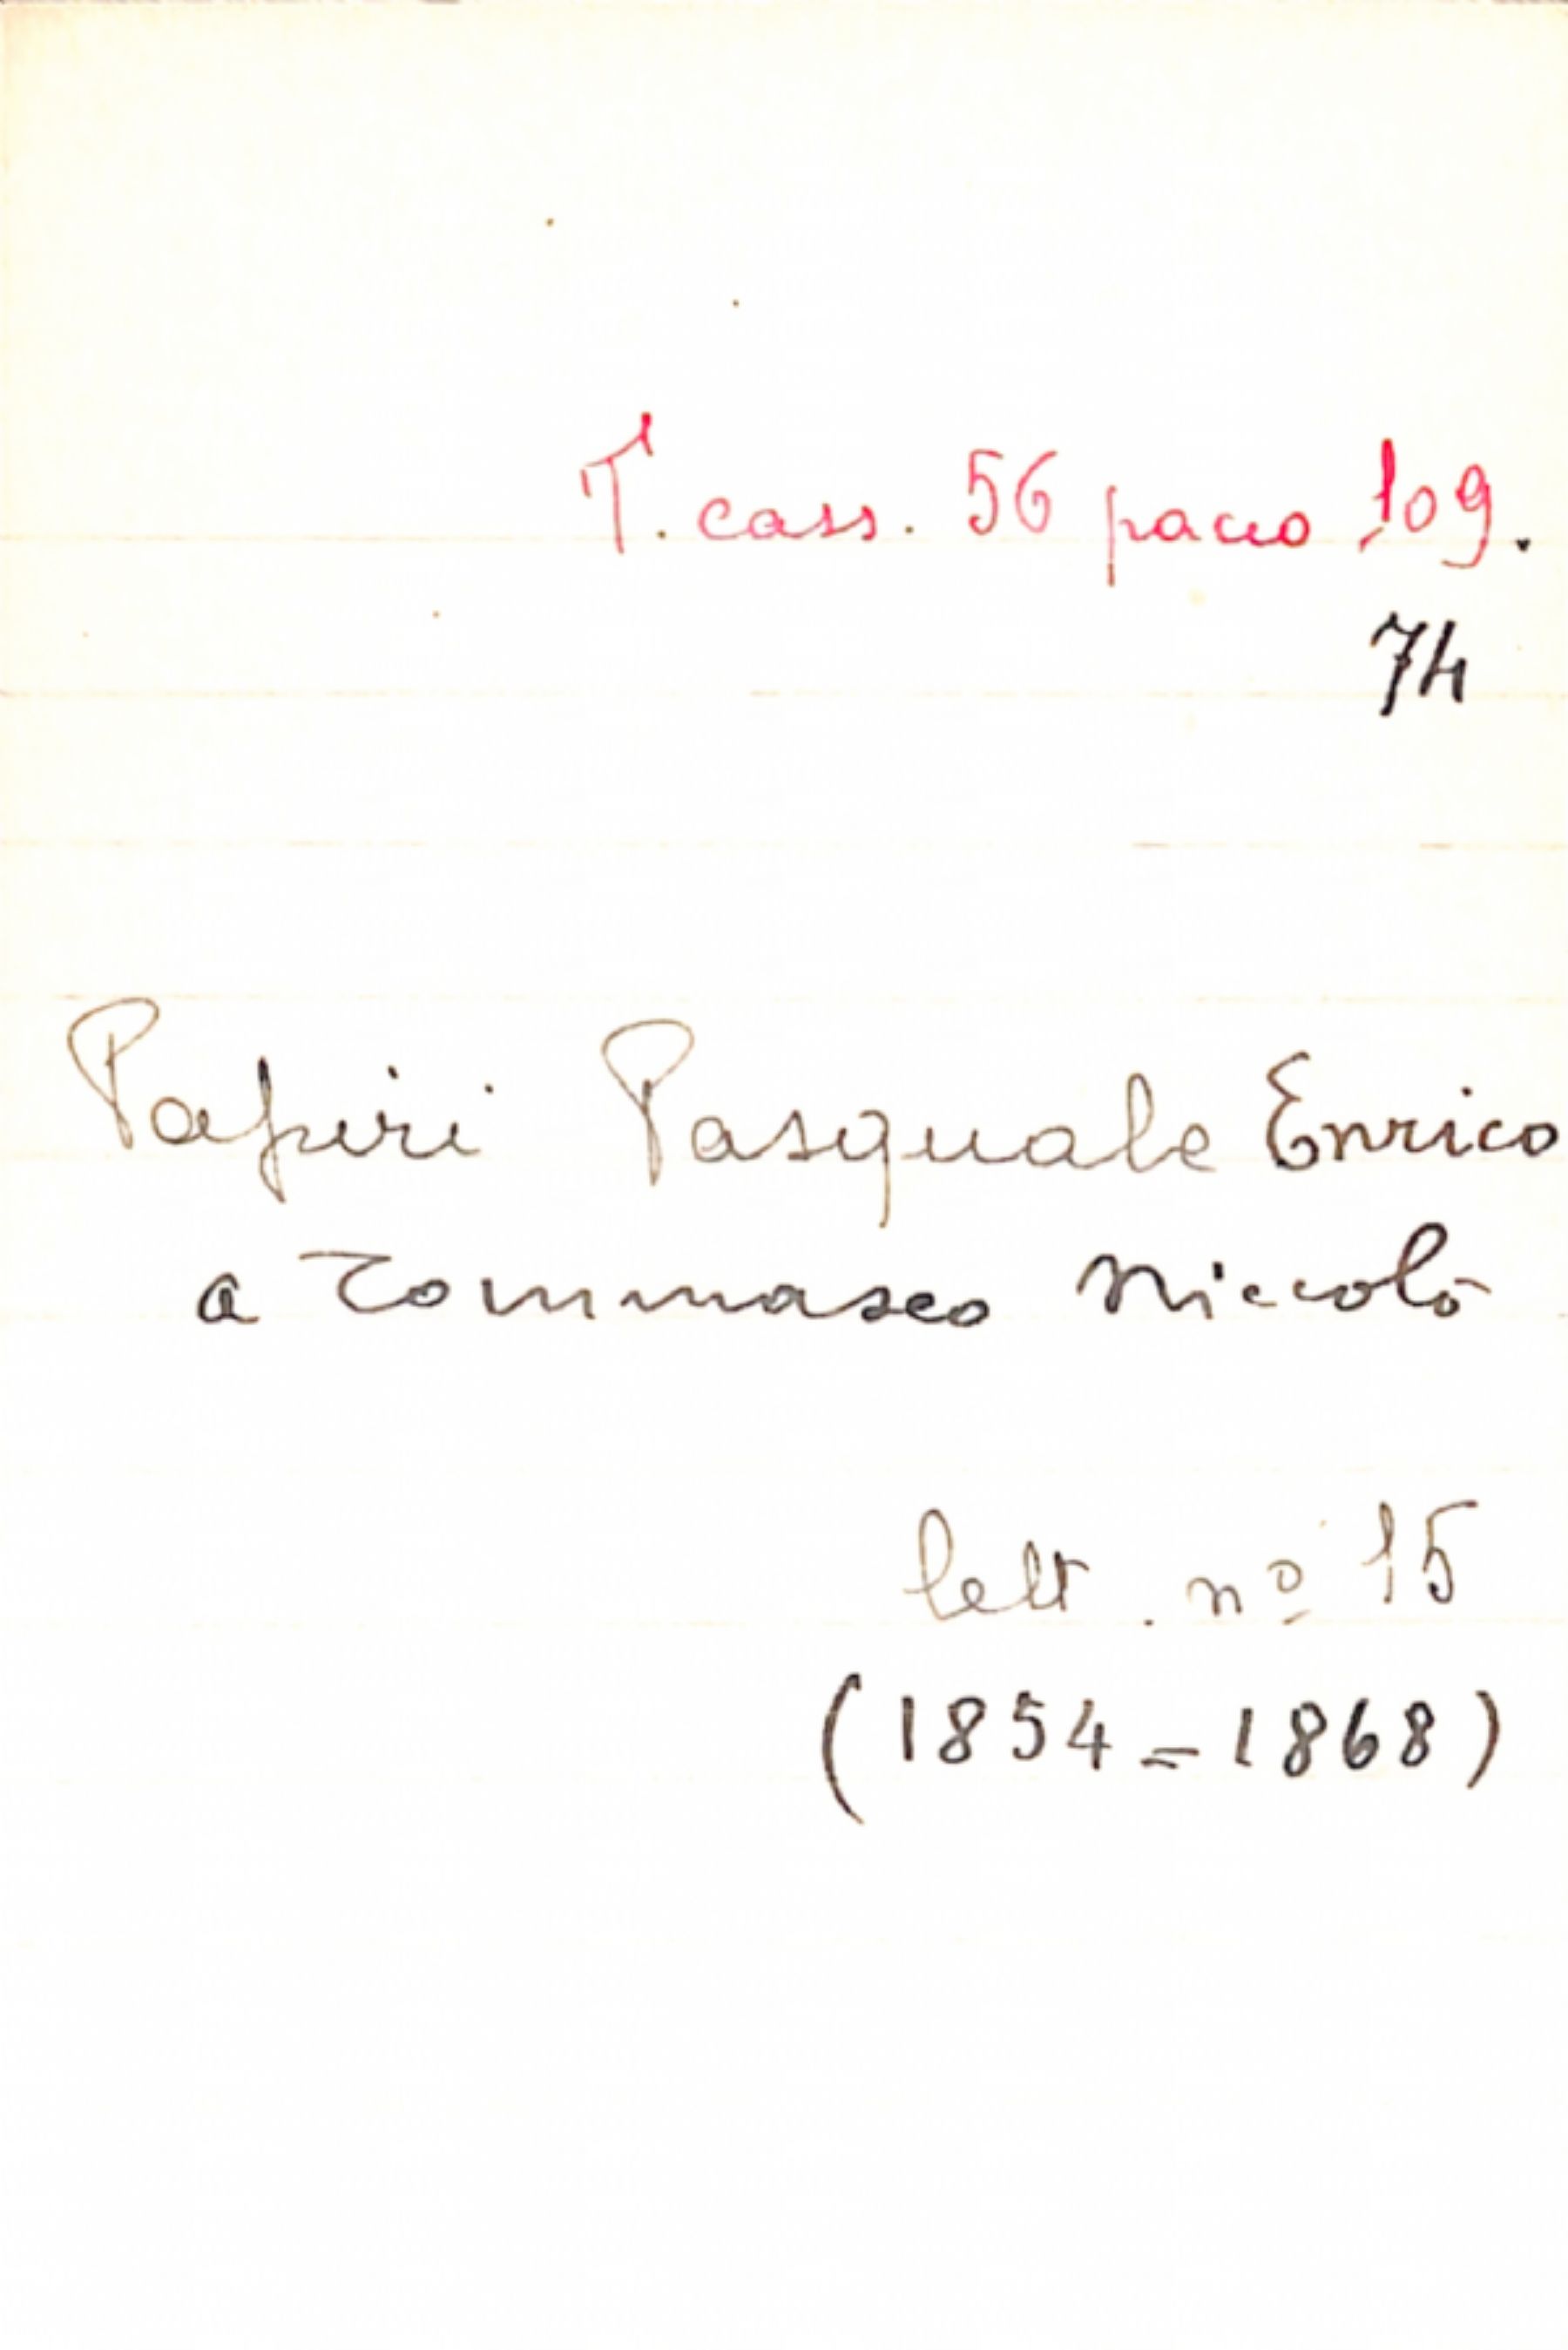 T. cass. 56 pacco 109.
74
Papiri Pasquale Enrico
a Tommaseo Niccolò
lett. nº 15
(1854-1868)